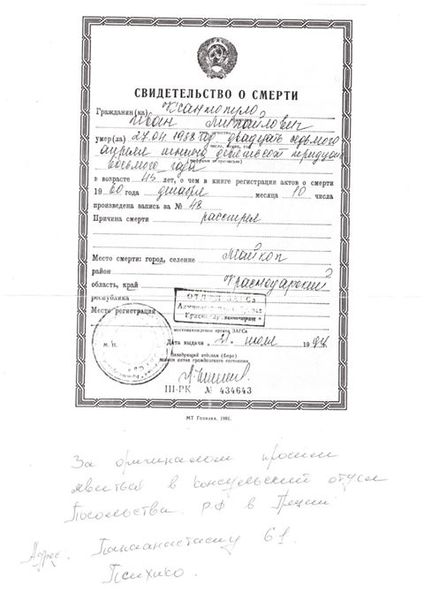 СВИДЕТЕЛЬСТВО О СМЕРТИ
Гражданин(ка) Ксантопуло
Иван Михайлович
умер(ла) 27.04 1938 год двадцать седьмого
апреля тысяча девятьсот тридцать
восьмого года
в возрасте лет, о чем в книге регистрации актов о смерти
1960 года декабря месяца 10 числа
произведена запись за № 48
Причина смерти расстрел
Место смерти: город, селение Майкоп
район
область, край Краснодарский
республика
Место регистрации ОТДЕЛ ЗАГСа
местонахождение органа ЗАГСа
Дата выдачи 21 июля 1994
М. П.
Заведующий отделом (бюро)
записи актов гражданского состояния
III-РК № 434643
МТ Гознака. 1981.
За оригиналом просим
явиться в консульский отдел
Посольства РФ в Греции
Адрес. Папанастасиу 61.
Психико.